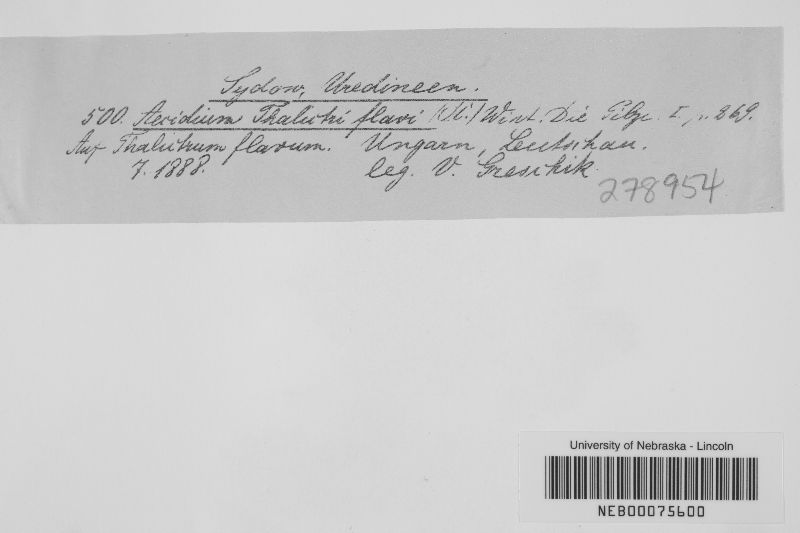 Sydow, Uredineen.
500. Aecidium Thalictri flavi (DC.) Wint. Die Pilze I, p. 269.
Auf Thalictrum flavum. Ungarn, Leutschau.
7. 1888. leg. V. Greschik
278954
University of Nebraska - Lincoln
NEB00075600